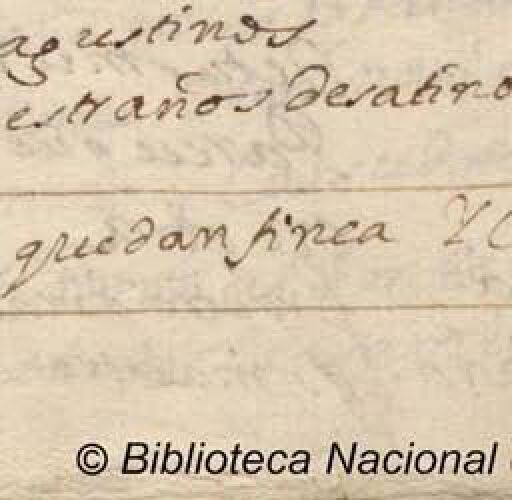 agustinos
estraños desatino
quedan finca Y
© Biblioteca Nacional